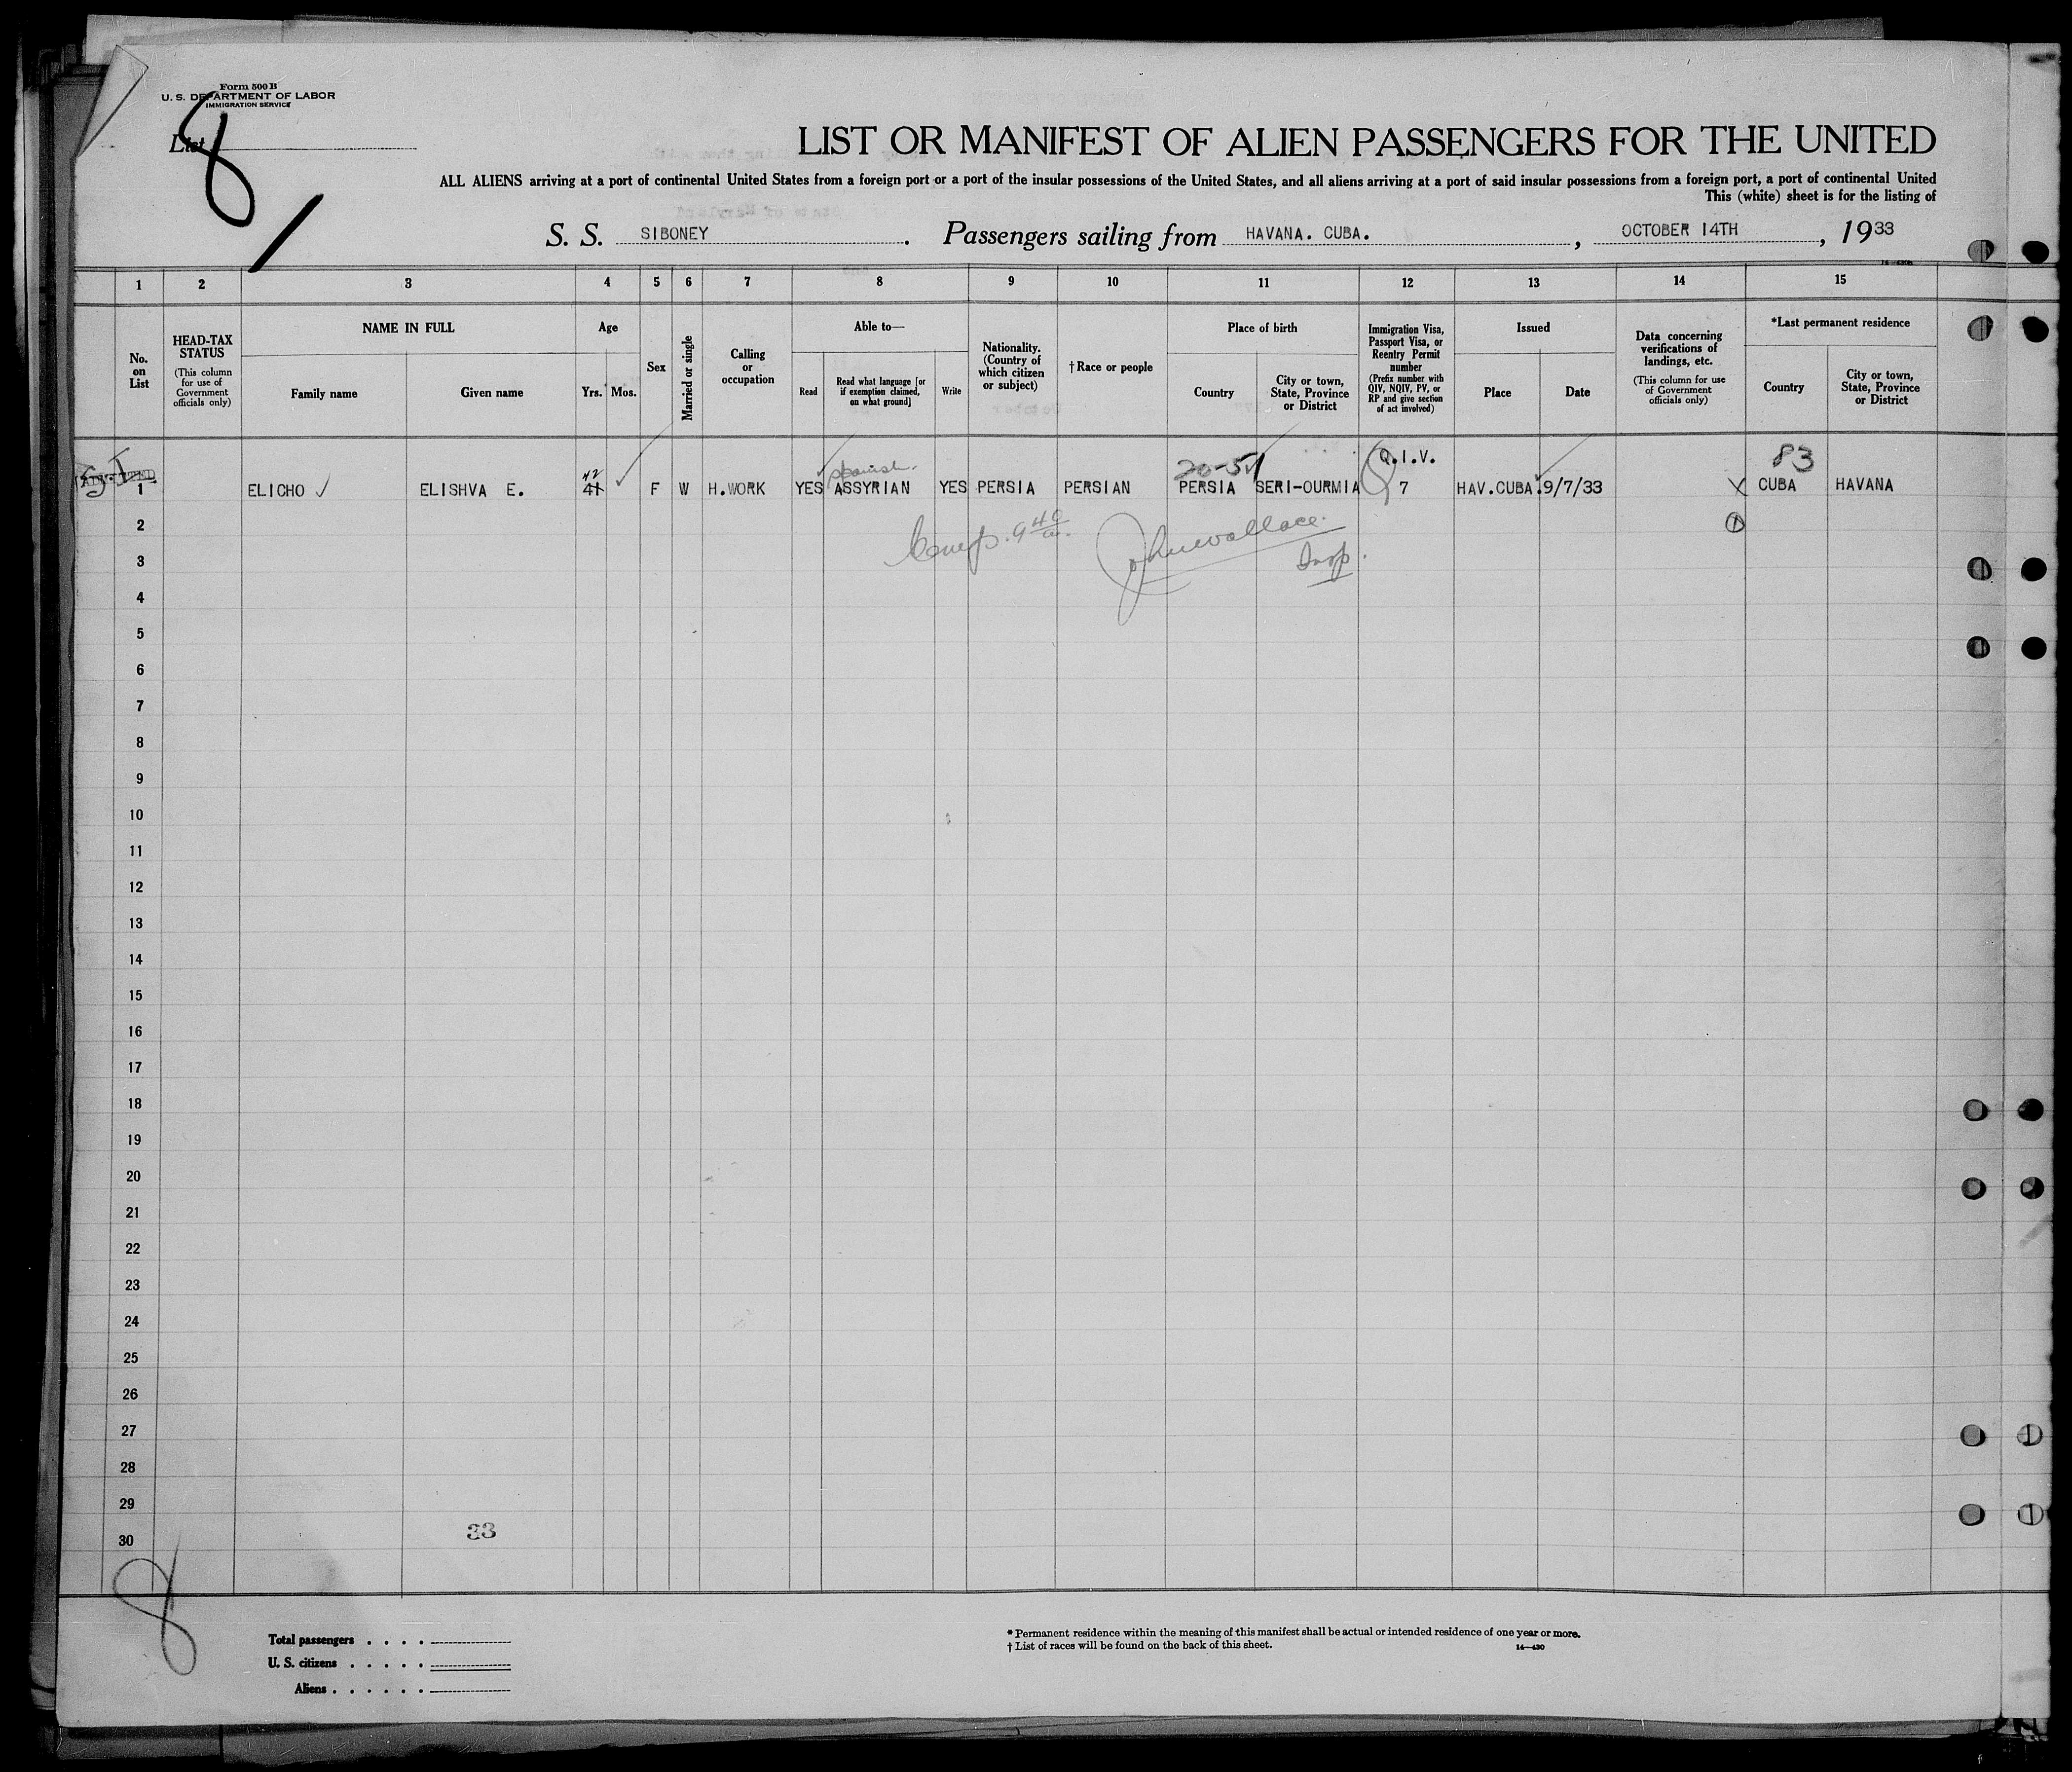 Form 500 B
U. S. DEPARTMENT OF LABOR
IMMIGRATION SERVICE
List 8
LIST OR MANIFEST OF ALIEN PASSENGERS FOR THE UNITED
ALL ALIENS arriving at a port of continental United States from a foreign port or a port of the insular possessions of the United States, and all aliens arriving at a port of said insular possessions from a foreign port, a port of continental United
This (white) sheet is for the listing of
S. S. SIBONEY. Passengers sailing from HAVANA. CUBA., OCTOBER 14TH, 1933
1 2 3 4 5 6 7 8 9 10 11 12 13 14 15
No. on List
HEAD-TAX STATUS (This column for use of Government officials only)
NAME IN FULL
Family name
Given name
Age
Yrs. Mos.
Sex
Married or single
Calling or occupation
Able to—
Read
Read what language [or if exemption claimed, on what ground]
Write
Nationality. (Country of which citizen or subject)
†Race or people
Place of birth
Country
City or town, State, Province or District
Immigration Visa, Passport Visa, or Reentry Permit number (Prefix number with QIV, NQIV, PV, or RP and give section of act involved)
Issued
Place
Date
Data concerning verifications of landings, etc. (This column for use of Government officials only)
*Last permanent residence
Country
City or town, State, Province or District
42 Spanish. 20-51 Q.I.V. 83
1 ELICHO ELISHVA E. 41 F W H.WORK YES ASSYRIAN YES PERSIA PERSIAN PERSIA SERI-OURMIA 7 HAV.CUBA. 9/7/33 CUBA HAVANA
2
John Wallace.
3 Insp.
4
5
6
7
8
9
10
11
12
13
14
15
16
17
18
19
20
21
22
23
24
25
26
27
28
29
33
30
8
Total passengers . . . .
U. S. citizens . . . . .
Aliens . . . . . .
* Permanent residence within the meaning of this manifest shall be actual or intended residence of one year or more.
† List of races will be found on the back of this sheet.
14—430